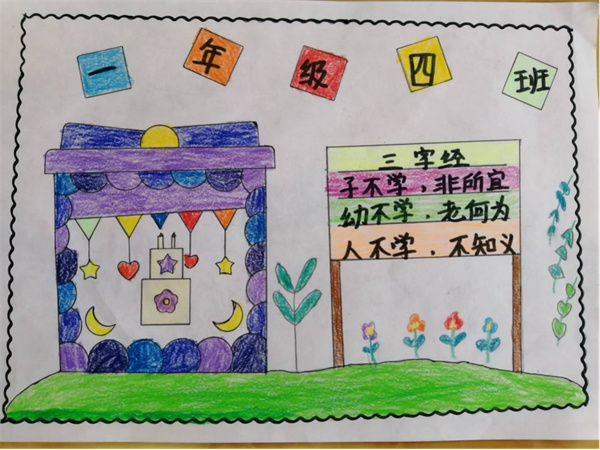 一年级四班
三字经
子不学,非所宜
幼不学.老何为
人不学.不知义